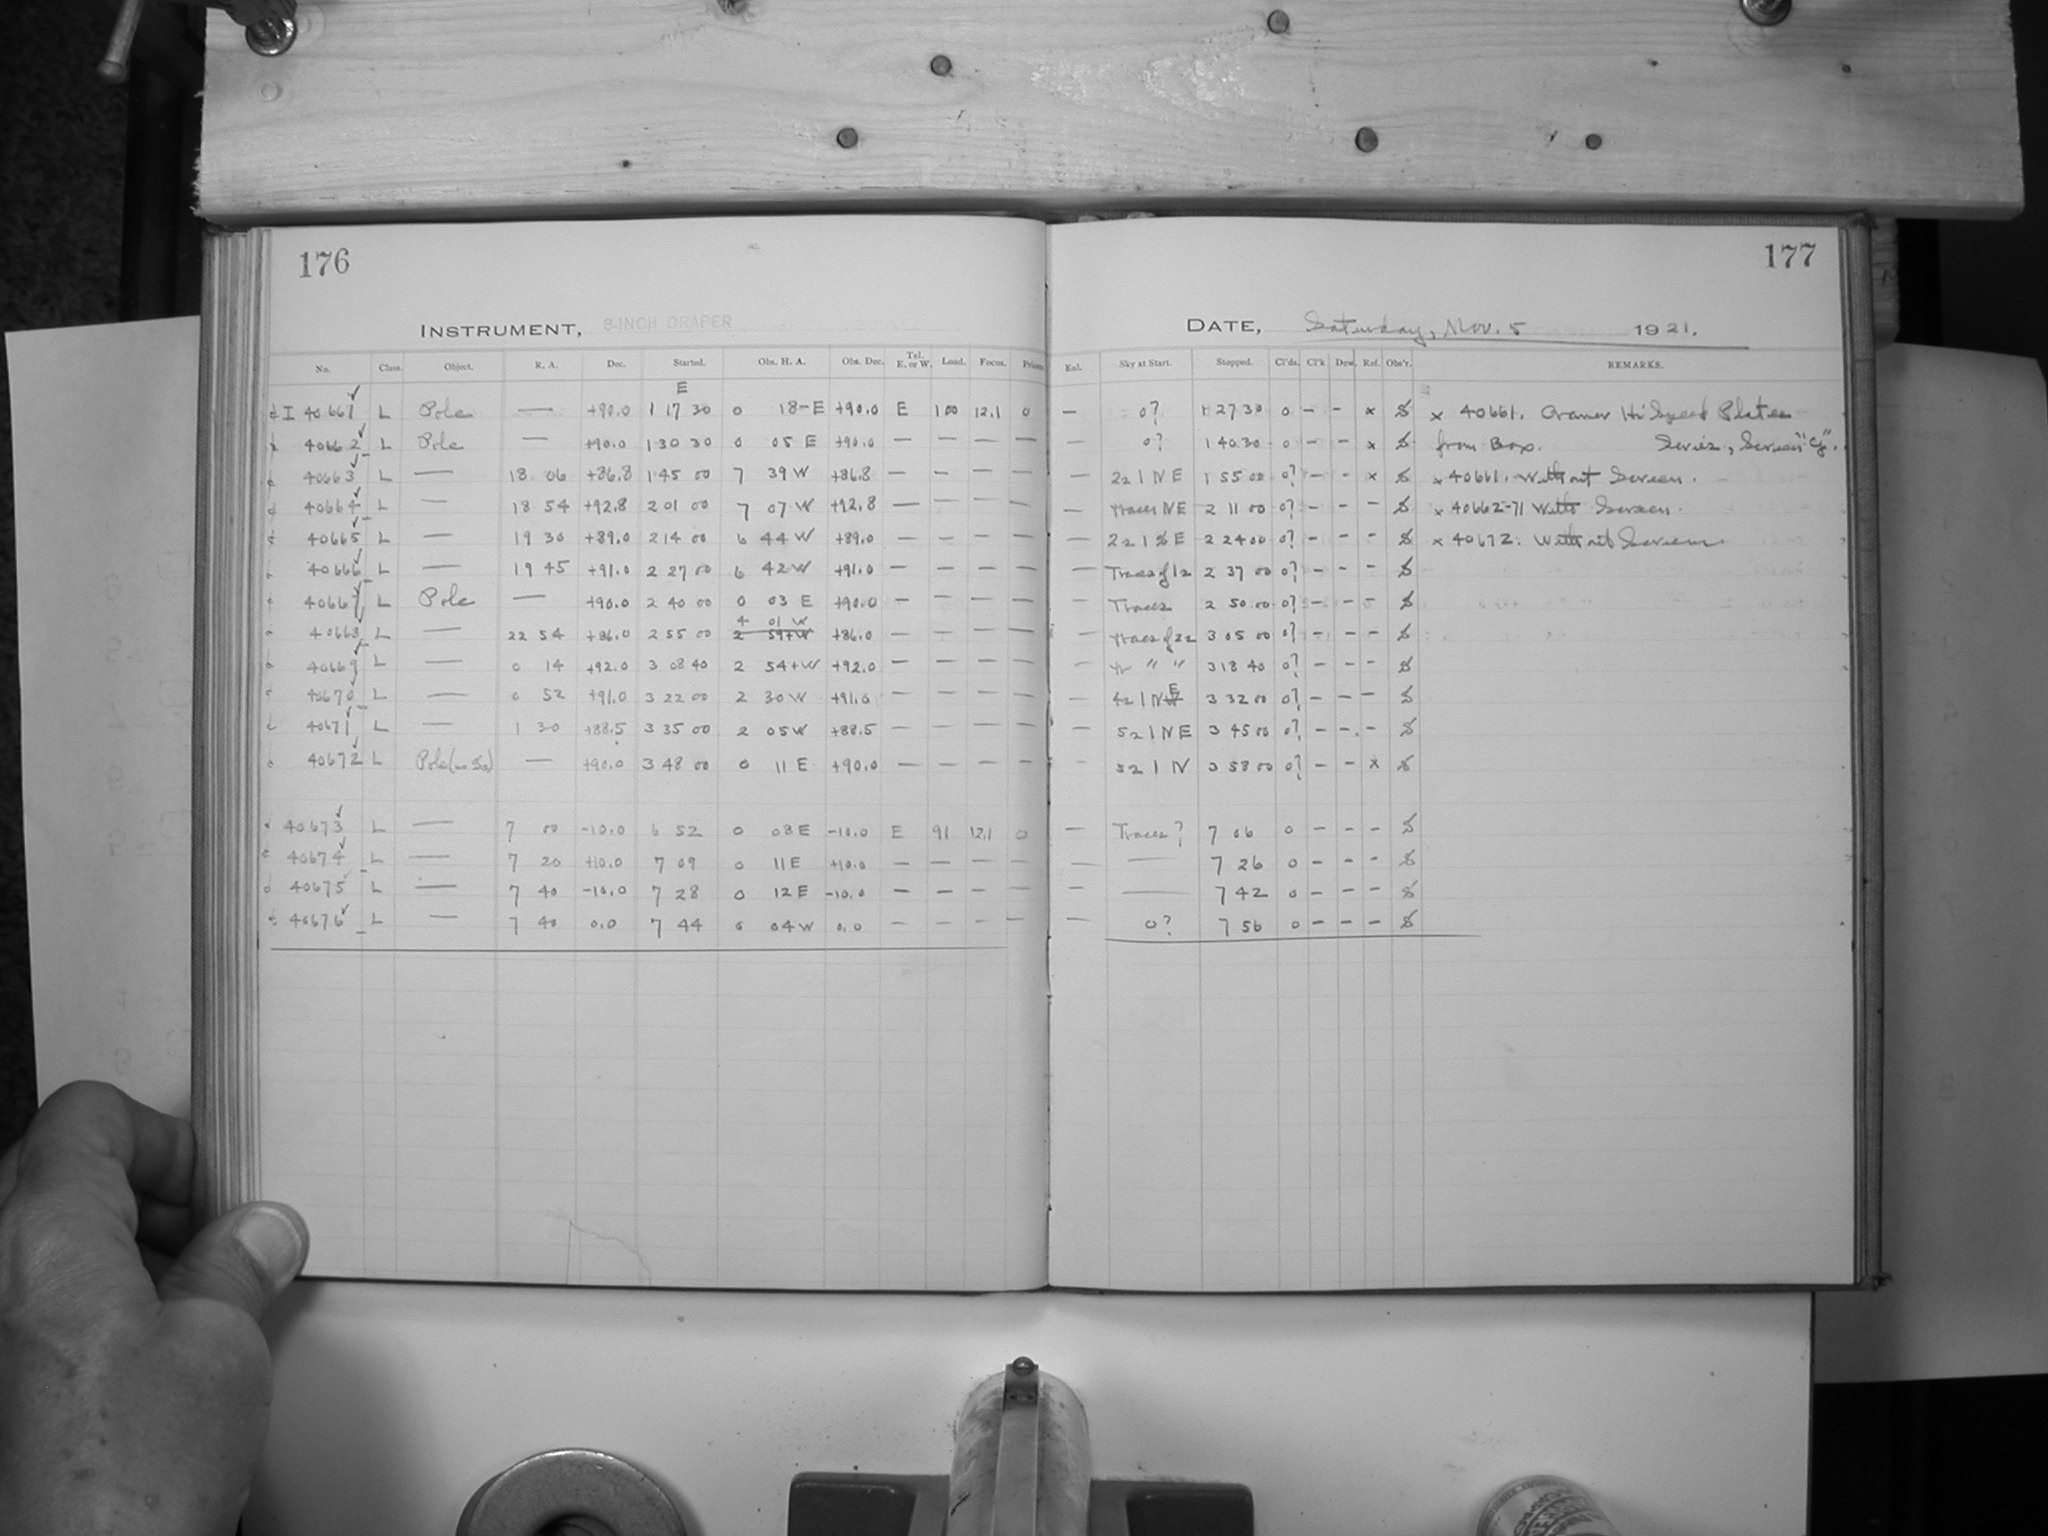 176
INSTRUMENT, 8-INCH DRAPER
No. Class. Object. R. A. Dec. Started. Obs. H. A. Obs. Dec. Tel. E. or W. Load. Focus. Prisms
E
I 40661 L Pole — +90.0 1 17 30 0 18-E +90.0 E 100 12.1 0
40662 L Pole — +90.0 1 30 30 0 05 E +90.0 — — — —
40663 L — 18 06 +86.8 1 45 00 7 39 W +86.8 — — — —
40664 L — 18 54 +92.8 2 01 00 7 07 W +92.8 — — — —
40665 L — 19 30 +89.0 2 14 00 6 44 W +89.0 — — — —
40666 L — 19 45 +91.0 2 27 00 6 42 W +91.0 — — — —
40667 L Pole — +90.0 2 40 00 0 03 E +90.0 — — — —
4 01 W
40668 L — 22 54 +86.0 2 55 00 2 59+W +86.0 — — — —
40669 L — 0 14 +92.0 3 08 40 2 54+W +92.0 — — — —
40670 L — 0 52 +91.0 3 22 00 2 30 W +91.0 — — — —
40671 L — 1 30 +88.5 3 35 00 2 05 W +88.5 — — — —
40672 L Pole — +90.0 3 48 00 0 11 E +90.0 — — — —
40673 L — 7 00 -10.0 6 52 0 08 E -10.0 E 91 12.1 0
40674 L — 7 20 +10.0 7 09 0 11 E +10.0 — — — —
40675 L — 7 40 -10.0 7 28 0 12 E -10.0 — — — —
40676 L — 7 40 0.0 7 44 0 04 W 0.0 — — — —
177
DATE, Saturday, Nov. 5 1921.
Eol. Sky at Start. Stopped. Cl'ds. Cl'k Dew. Ref. Obs'r. REMARKS.
— 0? 1 27 30 0 — — x S x 40661. Cramer Hi Speed Plates
— 0? 1 40 30 0 — — x S from Box. Series, Screen "G".
— 221 NE 1 55 00 0? — — x S x 40661. Without Screen.
— Traces NE 2 11 00 0? — — — S x 40662-71 With Screen.
— 221 SE 2 24 00 0? — — — S x 40672. Without Screen
— Traces of 12 2 37 00 0? — — — S
— Traces 2 50 00 0? — — — S
— Traces of 22 3 05 00 0? — — — S
— " " 3 18 40 0? — — — S
E
— 421 NW 3 32 00 0? — — — S
— 521 NE 3 45 00 0? — — — S
— 521 N 3 58 00 0? — — x S
— Traces? 7 06 0 — — — S
— — 7 26 0 — — — S
— — 7 42 0 — — — S
— 0? 7 56 0 — — — S